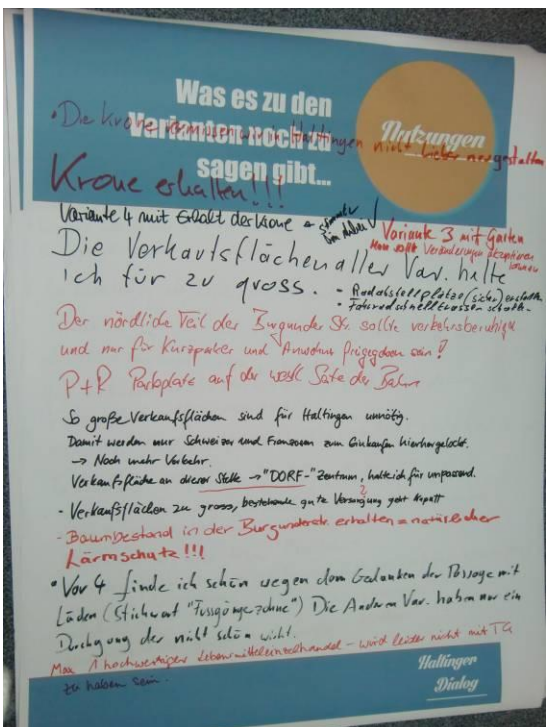 Was es zu den
Varianten noch zu
sagen gibt...
Nutzungen
• Die Krone vermissen wir in Haltingen nicht lieber neugestalten
Krone erhalten!!!
Variante 4 mit Erhalt der Krone
Variante 3 mit Garten
Man sollte Veränderungen akzeptieren können
Die Verkaufsflächen aller Var. halte
ich für zu gross.
- Radabstellplätze (sicher)
- Fahrradschnelltrassen schaffen
Der nördliche Teil der Burgunder Str. sollte verkehrsberuhigt
und nur für Kurzparker und Anwohner freigegeben sein!
P+R Parkplätze auf der westl. Seite der Bahn
So große Verkaufsflächen sind für Haltingen unnötig.
Damit werden nur Schweizer und Franzosen zum Einkaufen hierhergelockt.
→ Noch mehr Verkehr.
Verkaufsfläche an dieser Stelle → "DORF-"Zentrum, halte ich für unpassend.
- Verkaufsflächen zu gross, bestehende gute Versorgung geht kaputt
- Baumbestand in der Burgunderstr. erhalten = natürlicher
Lärmschutz!!!
• Var 4 finde ich schön wegen dem Gedanken der Passage mit
Läden (Stichwort "Fussgängerzohne") Die Anderen Var. haben nur ein
Durchgang der nicht schön wirkt.
Max 1 hochwertiger Lebensmitteleinzelhandel - wird leider nicht mit TG
zu haben sein.
Haltinger
Dialog